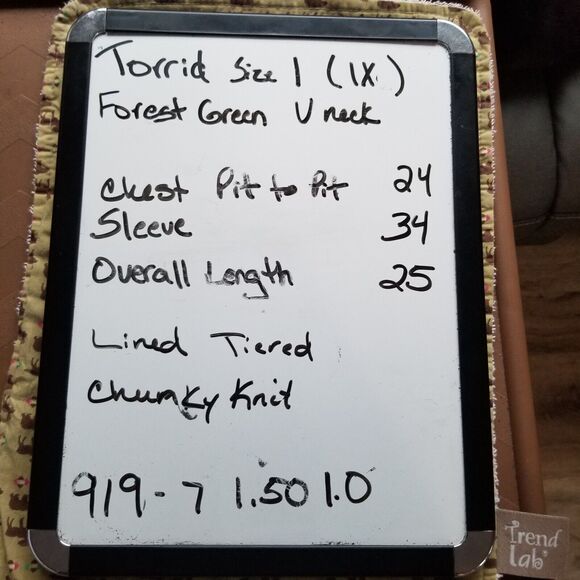 Torrid Size 1 (1X)
Forest Green V neck
Chest Pit to Pit 24
Sleeve 34
Overall Length 25
Lined Tiered
Chunky Knit
919-7 1.50 1.0
Trend
Lab